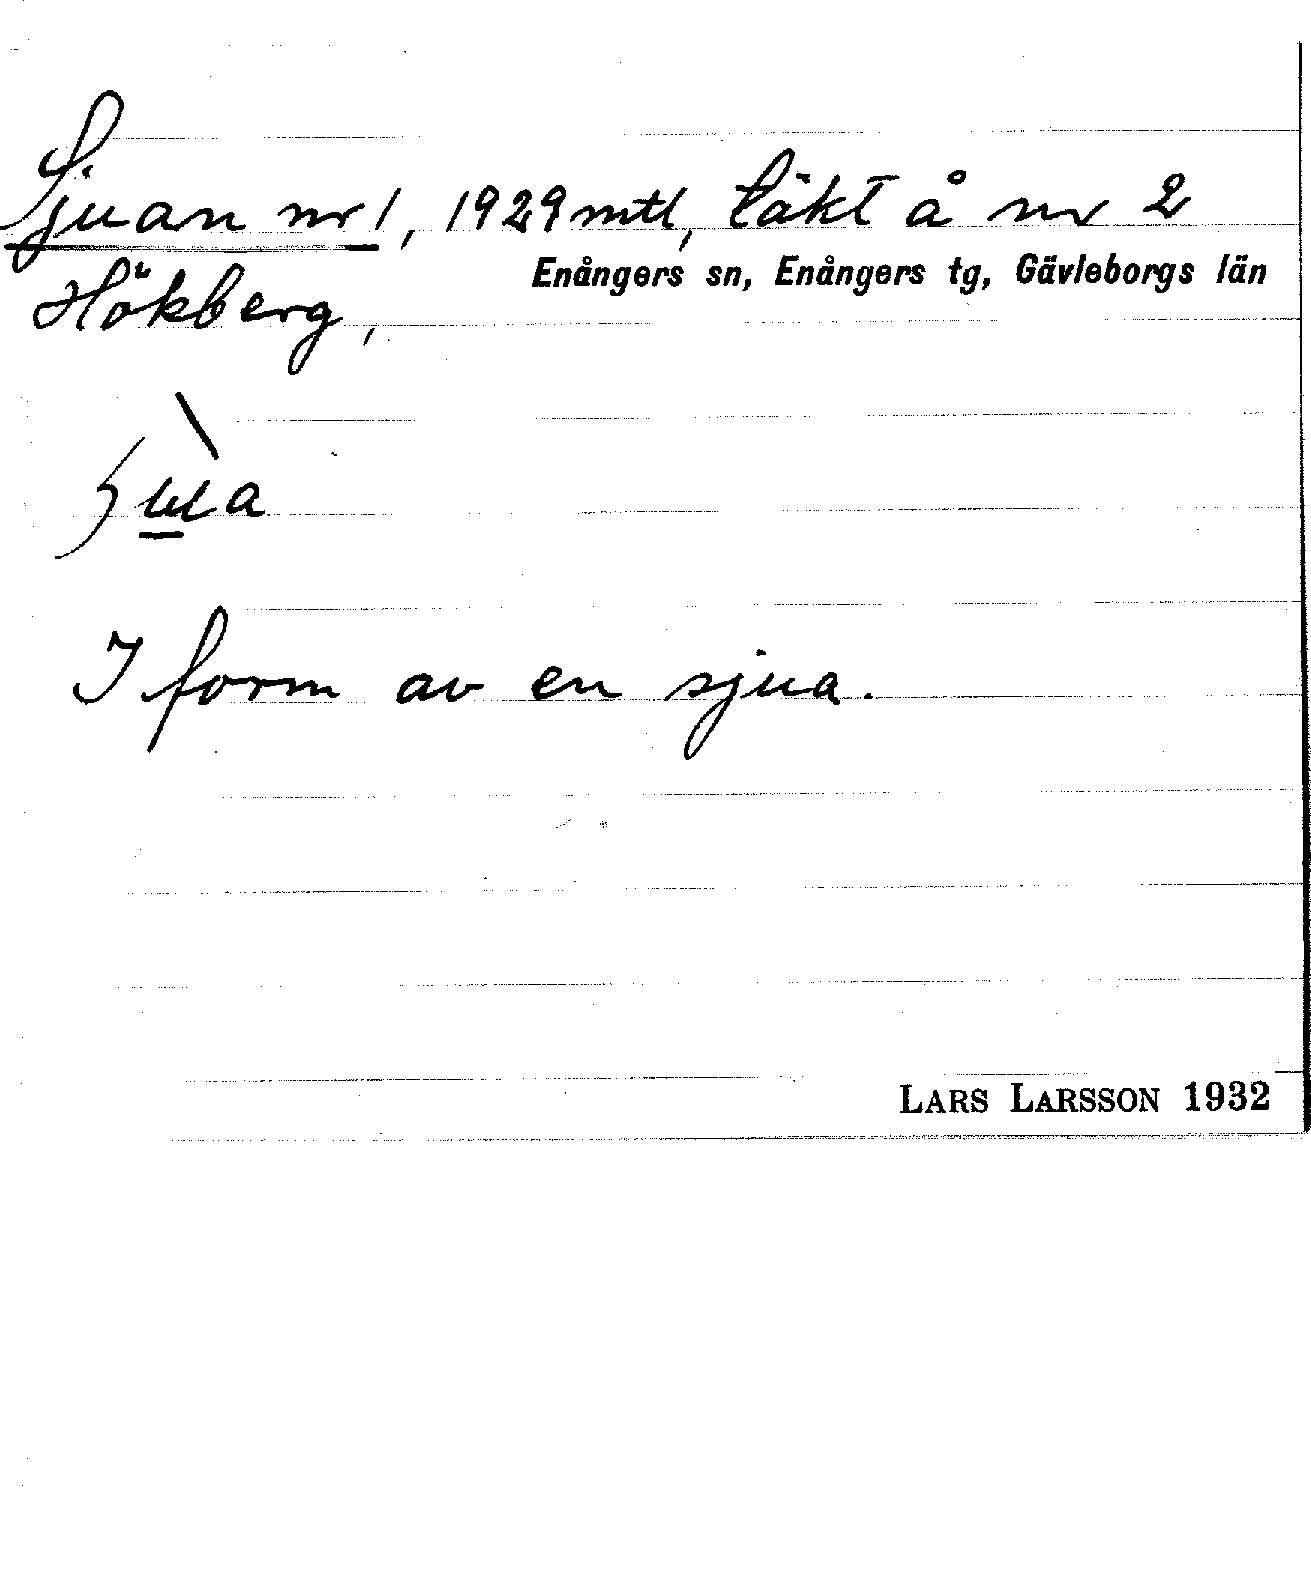 Sjuan nr 1, 1929 mtl, täkt å nr 2
Enångers sn, Enångers tg, Gävleborgs län
Hökberg,
I form av en sjua.
LARS LARSSON 1932